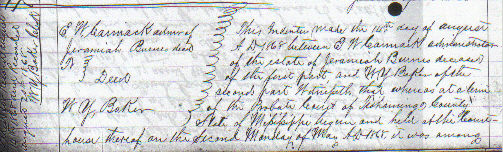 E W Carmack admr of
Jeremiah Burns decd
To } Deed
W. Y. Baker
This Indenture made the 14th day of august
A D 1868 between E W Carmack administrator
of the estate of Jeremiah Burns deceased
of the first part and W Y Baker of the
second part Witnesseth that whereas at a term
of the Probate Court of Tishomingo County
State of Mississippi begun and held at the Court-
house thereof on the Second Monday of May A D 1868. it was among